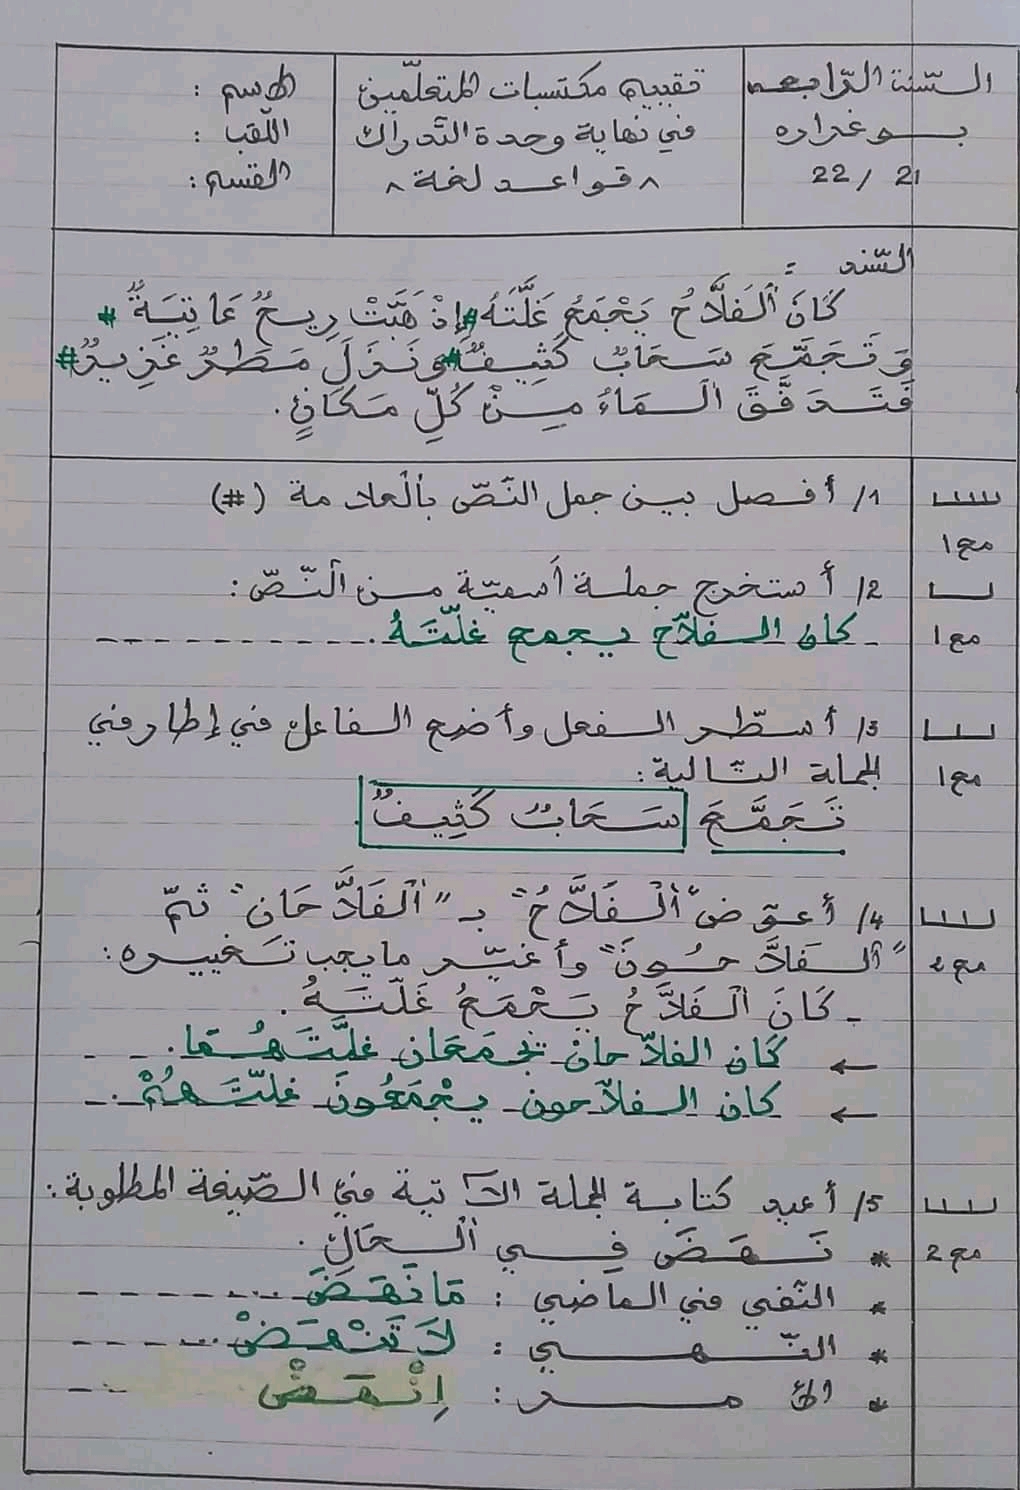 السّنة الرّابعة
بوغرارة
21 / 22
تقييم مكتسبات المتعلّمين
في نهاية وحدة التّدارك
^ قواعد لغة ^
الاسم :
اللّقب :
القسم :
السّند :
كَانَ ٱلْفَلَّاحُ يَجْمَعُ غَلَّتَهُ # إِذْ هَبَّتْ رِيحٌ عَاتِيَةٌ #
وَ تَجَمَّعَ سَحَابٌ كَثِيفٌ # وَنَزَلَ مَطَرٌ غَزِيرٌ #
فَتَدَفَّقَ الْمَاءُ مِنْ كُلِّ مَكَانٍ.
1/ أفصل بين جمل النّصّ بٱلعلامة (#)
مع 1
2/ أستخرج جملة ٱسميّة من ٱلنّصّ :
مع 1
ـ كان الفلاّح يجمع غلّتَهُ.
3/ أسطّر الفعل وأضع الفاعل في إطار في
الجملة التّالية :
مع 1
تَجَمَّعَ سَحَابٌ كَثِيفٌ.
4/ أعوّض "ٱلْفَلَّاحُ" بـ "ٱلْفَلَّاحَانِ" ثمّ
"ٱلْفَلَّاحُونَ" وأغيّر ما يجب تغييره :
مع 2
ـ كَانَ ٱلْفَلَّاحُ يَجْمَعُ غَلَّتَهُ.
← كَان الفلاّحانِ يَجْمَعَان غلَّتَهُمَا.
← كان الفلاّحون يَجْمَعُونَ غلّتَهُمْ.
5/ أعيد كتابة الجملة الآتية في الصّيغة المطلوبة :
مع 2
* نَهَضَ فِي ٱلْحَالِ.
* النّفي في الماضي : مَا نَهَضَ
* النّهي : لَا تَنْهَضْ
* الأمر : اِنْهَضْ